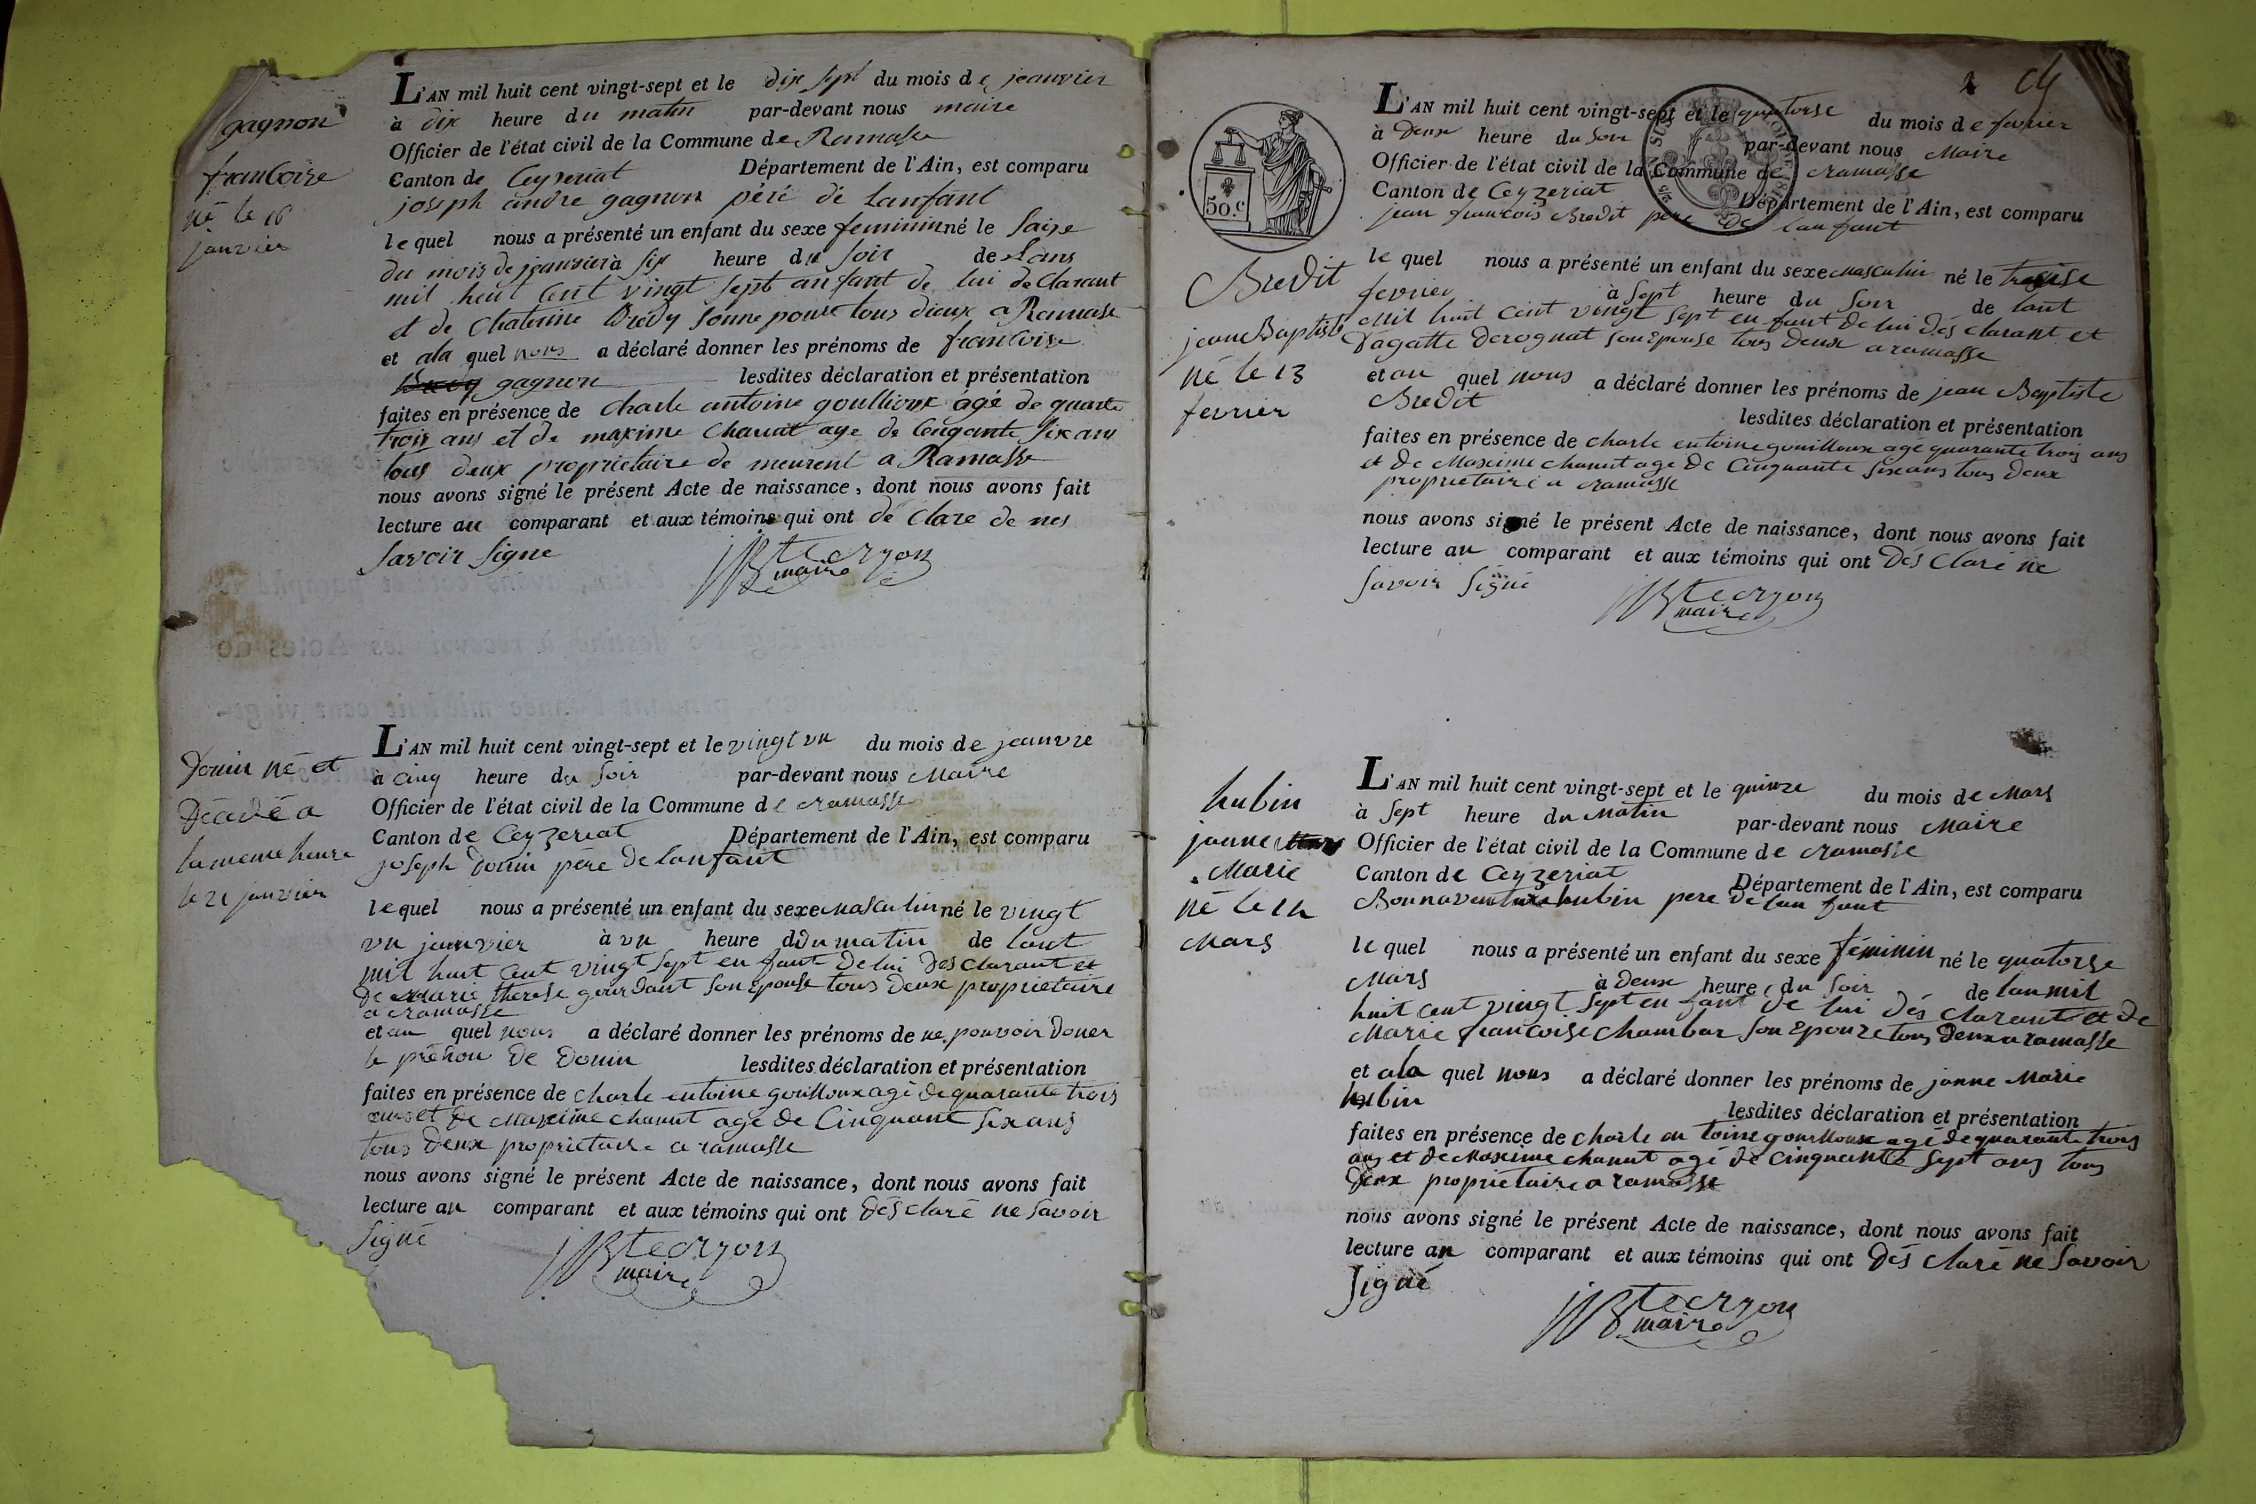 gagnon
francoise
né le 16
janvier
L'AN mil huit cent vingt-sept et le dix sept du mois de jeanvier
à dix heure du matin par-devant nous maire
Officier de l'état civil de la Commune de Ramasse
Canton de Ceyzeriat Département de l'Ain, est comparu
joseph andre gagnon péré dé Lanfant
le quel nous a présenté un enfant du sexe feminin né le Saise
du mois de jeanvier à six heure du soir de Lans
mil heut Cent vingt sept anfant de lui de Clarant
et de Chaterine Bredy sonne pouse tous dieux a Ramase
et ala quel nous a déclaré donner les prénoms de francoise
gagnon lesdites déclaration et présentation
faites en présence de Charle antoine goullioux agé de quarte
trois ans et de maxime Chanut age de Cenqante Six ans
tous deux proprietaire de meurent a Ramasse
nous avons signé le présent Acte de naissance, dont nous avons fait
lecture au comparant et aux témoins qui ont dé Clare de nes
savoir signe
maire
Douin né et
Décedé a
la meme heure
le 21 janvier
L'AN mil huit cent vingt-sept et le vingt un du mois de jeanvre
à cinq heure du soir par-devant nous Maire
Officier de l'état civil de la Commune de ramasse
Canton de Ceyzeriat Département de l'Ain, est comparu
joseph Douin pére de lanfant
le quel nous a présenté un enfant du sexe Masculin né le vingt
un janvier à un heure du matin de lant
mil huit Cent vingt sept en fant de lui des clarant et
de Marie therese gourdant son epouse tous deux proprietaire
a ramasse
et au quel nous a déclaré donner les prénoms de ne pouvoir doner
le prénon de Douin lesdites déclaration et présentation
faites en présence de Charle entoine gouilloux agé de quarante trois
ans et de Maxime chanut agé de Cinquant six ans
tous deux proprietaire a ramasse
nous avons signé le présent Acte de naissance, dont nous avons fait
lecture au comparant et aux témoins qui ont dés claré ne savoir
signé
maire
50.c
Bredit
jean Baptiste
né le 13
fevrier
L'AN mil huit cent vingt-sept et le quatorse du mois de fevrier
à Deux heure du soir par-devant nous Maire
Officier de l'état civil de la Commune de ramasse
Canton de Ceyzeriat Département de l'Ain, est comparu
jean francois Bredit pere de lanfant
le quel nous a présenté un enfant du sexe Masculin né le treise
fevrier à sept heure du soir de lant
Mil huit cent vingt sept en fant de lui dés clarant et
Dagatte derognat son epouse tous deux a ramasse
et au quel nous a déclaré donner les prénoms de jean Baptiste
Bredit lesdites déclaration et présentation
faites en présence de charle entoine gouilloux agé quarante trois ans
et de Maxime chanut agé de Cinquante six ans tous deux
proprietaire a ramasse
nous avons signé le présent Acte de naissance, dont nous avons fait
lecture au comparant et aux témoins qui ont dés claré ne
savoir signé
maire
hubin
janne
Marie
né le 14
Mars
L'AN mil huit cent vingt-sept et le quinze du mois de Mars
à sept heure du Matin par-devant nous Maire
Officier de l'état civil de la Commune de ramasse
Canton de Ceyzeriat Département de l'Ain, est comparu
Bonnaventure hubin pere de lan fant
le quel nous a présenté un enfant du sexe féminin né le quatorse
Mars à deux heure du soir de lan mil
huit cent vingt sept en fant de lui dés clarant et de
Marie francoise chambar son epouze tous deux a ramasse
et ala quel nous a déclaré donner les prénoms de janne Marie
hubin lesdites déclaration et présentation
faites en présence de charle en toine gouilloux agé de quarante trois
ans et de Maxime chanut agé de cinquente sept ans tous
deux proprietaire a ramasse
nous avons signé le présent Acte de naissance, dont nous avons fait
lecture au comparant et aux témoins qui ont dés claré ne savoir
signé
maire